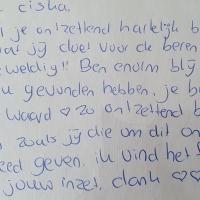 ciska.
je ontzettend hartelijk b
jij doet voor de beren
weldig!! Ben enorm blij
u gevonden hebben, je b
waard ♡ zo ontzettend b
zoals jij die om dit on
geven. ik vind het f
jouw inzet, dank ♡♡